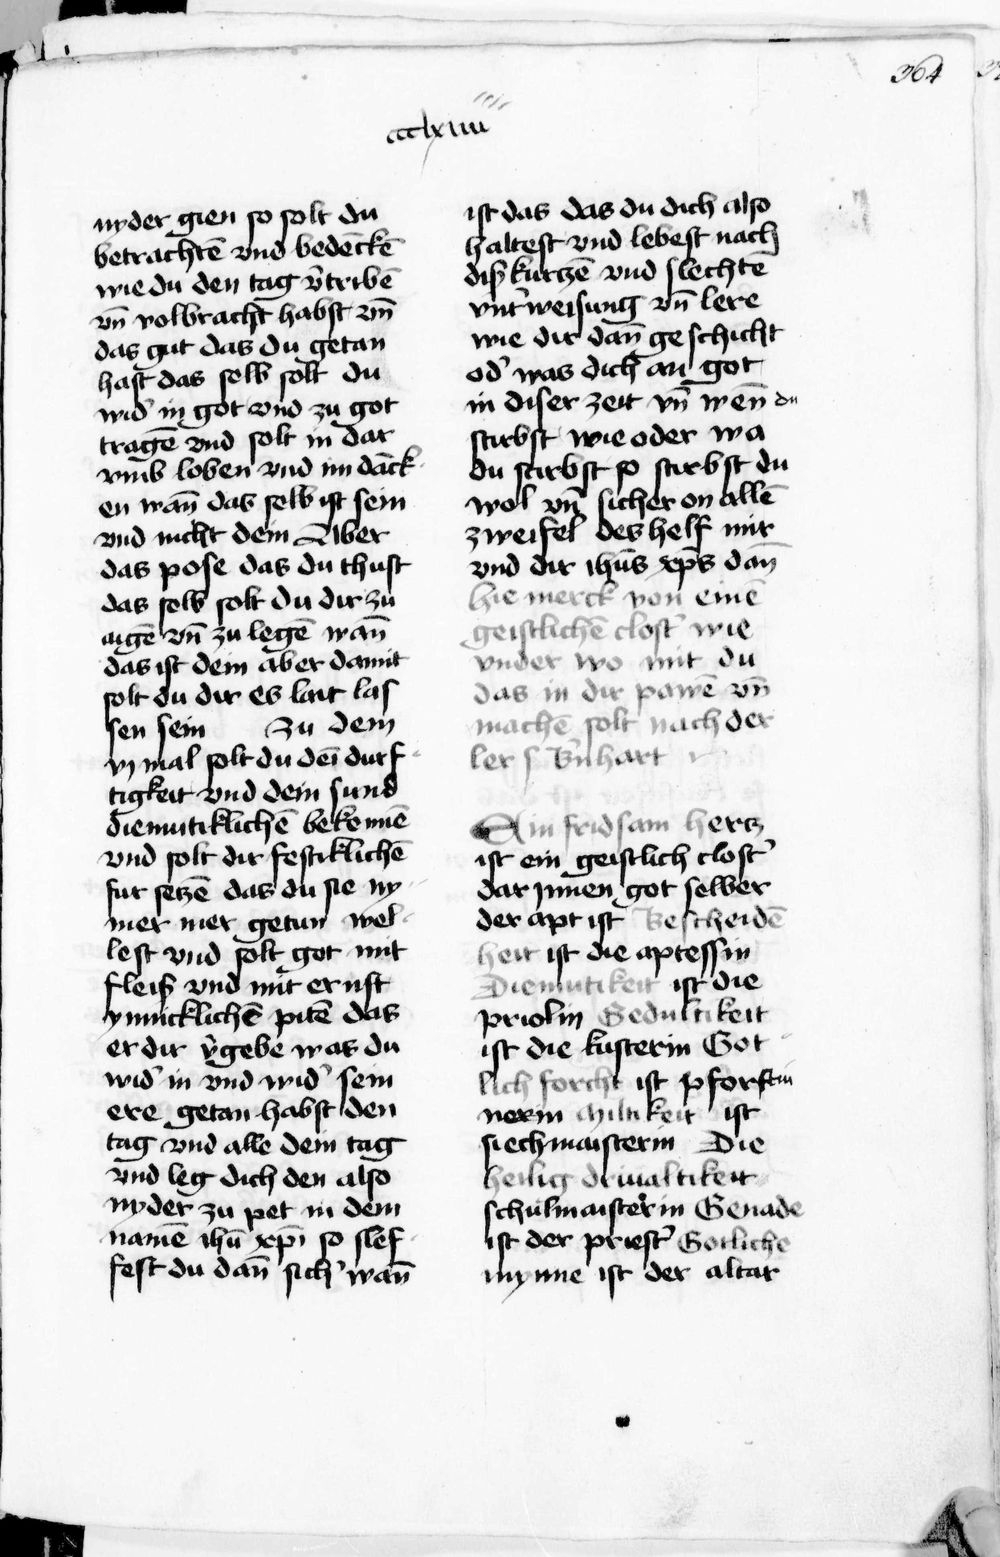 364
ccclxiiii
nyder gien so solt du
betrachtē vnd bedēckē
wie du den tag v̄tribē
vn̄ volbracht habst vn̄
das gut das du getan
hast das selb solt du
wid' in got vnd zu got
tragē vnd solt in dar
vmb loben vnd im dāck
en wan̄ das selb ist sein
vnd nicht dein Aber
das pose das du thust
das selb solt du dir zu
aigē vn̄ zu legē wan̄
das ist dein aber damit
solt du dir es lait las
sen sein Zu dem
vj mal solt du dei̅ durf
tigkeit vnd dein sund
diemutiklichē bekennē
vnd solt dir festiklichē
fur setzē das du sie ny
mer mer getun wel
lest vnd solt got mit
fleiß vnd mit ernst
ynnicklichē pitē das
er dir v̄gebe was du
wid' in vnd wid' sein
ere getan habst den
tag vnd alle dein tag
vnd leg dich den also
nyder zu pet in dem
namē ihū xp̄i so slef
fest du dan̄ sich' wan̄
ist das das du dich also
haltest vnd lebest nach
diß kurczē vnd slechtē
vnt'weisung vn̄ lere
wie dir dan̄ geschicht
od' was dich an got
in diser zeit vn̄ wen̄ du
stirbst wie oder wa
du stirbst so stirbst du
wol vn̄ sicher on allē
zweifel des helf mir
vnd dir ihūs xp̄s dan̄
hie merck von einē
geistlichē clost' wie
vnder wo mit du
das in dir pawē vn̄
machē solt nach der
ler s b'nhart
Ain fridsam hertz
ist ein geistlich clost'
dar jnnen got selber
der apt ist Bescheidē
heit ist die aptessin
Diemutikeit ist die
priolin Gedultikeit
ist die kusterin Got
lich forcht ist pfortnin
nerin Miltikeit ist
siechmaisterin Die
heilig driualtikeit
schulmaisterin Genade
ist der priest' Gotliche
mynne ist der altar